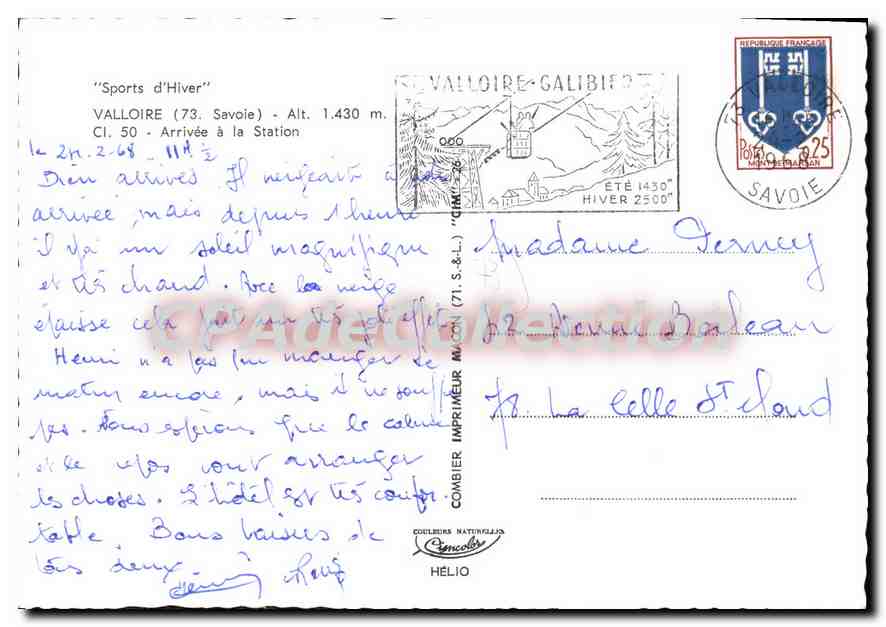 "Sports d'Hiver"
VALLOIRE (73. Savoie) - Alt. 1.430 m.
Cl. 50 - Arrivée à la Station
le 24.2.68 - 11H ½
Bien arrivés. Il neigeait à
arrivée, mais depuis 1 heure
il y a un soleil magnifique
et très chaud. Avec la neige
épaisse cela fait un très joli effet.
Henri n'a pas pu manger ce
matin encore, mais il ne souffre
pas. Nous espérons que le calme
et le repos vont arranger
les choses. L'hôtel est très confor-
table. Bons baisers de
tous deux
VALLOIRE-GALIBIER
ÉTÉ 1430m
HIVER 2500m
RÉPUBLIQUE FRANÇAISE
Postes 0,25
MONT-DE-MARSAN
73 VALLOIRE
SAVOIE
COMBIER IMPRIMEUR MACON (71. S.-&-L.) "CIM"
Madame
78. La Celle St Cloud
COULEURS NATURELLES
Cimcolor
HÉLIO
CPAdeCollection